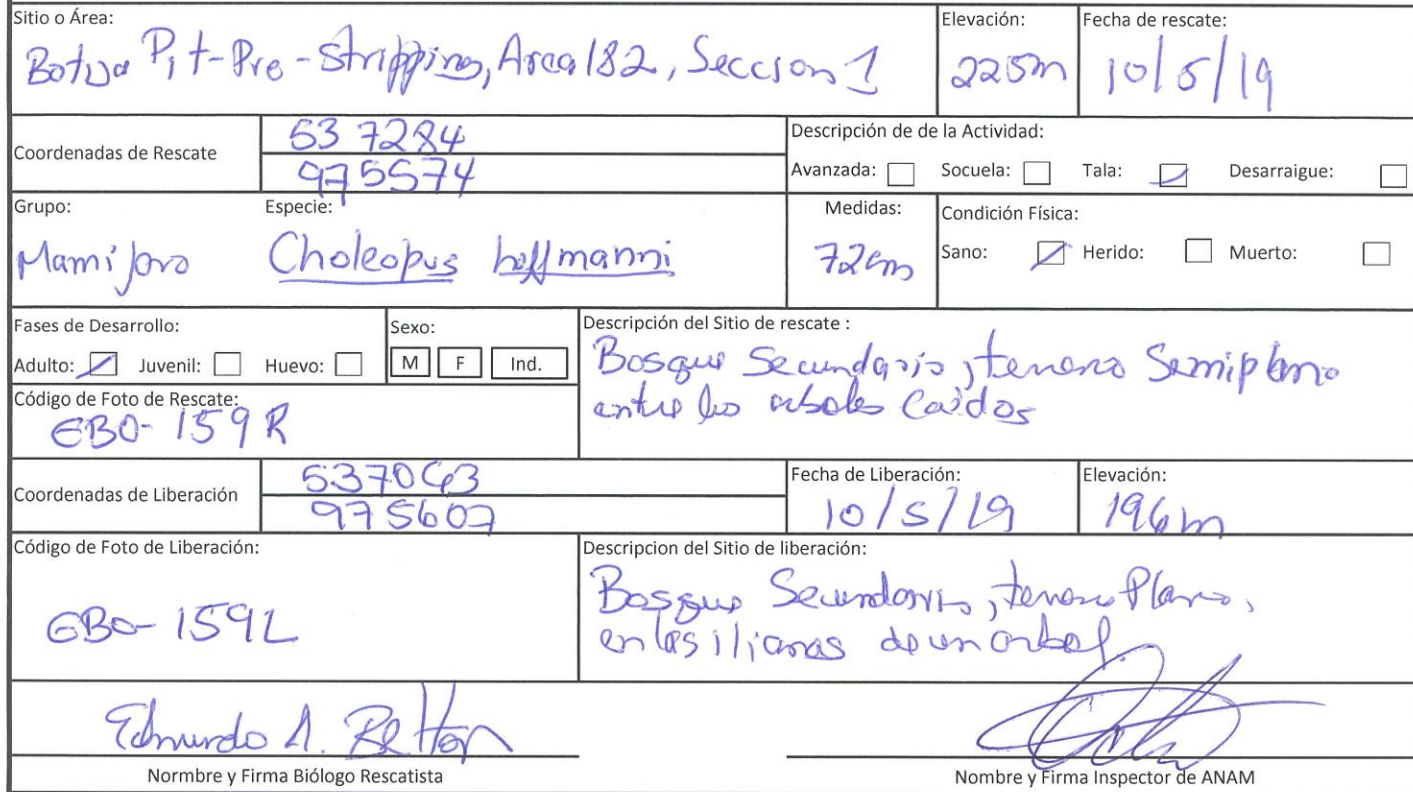 Sitio o Área:
Botija Pit-Pre-Stripping, Area 182, Seccion 1
Elevación:
225m
Fecha de rescate:
10/5/19
Coordenadas de Rescate
537284
975574
Descripción de de la Actividad:
Avanzada: Socuela: Tala: Desarraigue:
Grupo:
Mamifero
Especie:
Choleopus hoffmanni
Medidas:
72cm
Condición Física:
Sano: Herido: Muerto:
Fases de Desarrollo:
Adulto: Juvenil: Huevo:
Sexo:
M F Ind.
Descripción del Sitio de rescate :
Bosque Secundario, terreno Semiplano
entre los arboles Caidos
Código de Foto de Rescate:
EBO-159R
Coordenadas de Liberación
537063
975607
Fecha de Liberación:
10/5/19
Elevación:
196m
Código de Foto de Liberación:
EBO-159L
Descripcion del Sitio de liberación:
Bosque Secundario, terreno Plano,
en las lianas de un arbol.
Edmundo A. Belton
Normbre y Firma Biólogo Rescatista
Nombre y Firma Inspector de ANAM